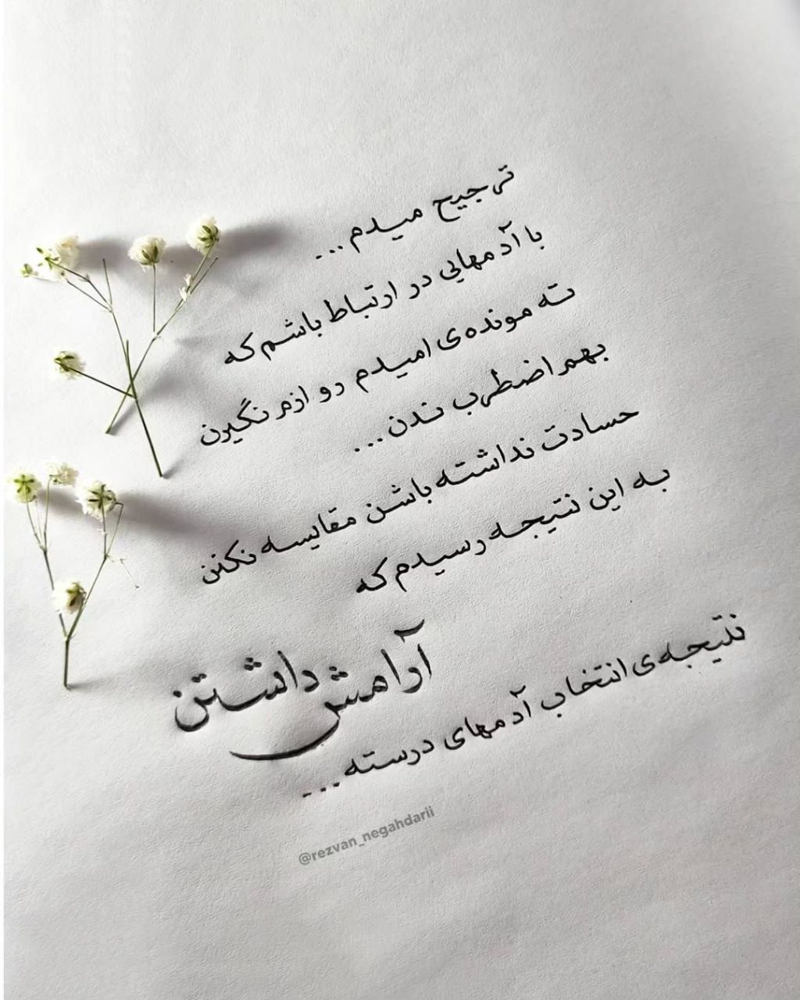 ترجیح میدم...
با آدمهایی در ارتباط باشم که
ته مونده‌ی امیدم رو ازم نگیرن
بهم اضطرب ندن...
حسادت نداشته باشن مقایسه نکنن
به این نتیجه رسیدم که
آرامش داشتن
نتیجه‌ی انتخاب آدمهای درسته...
@rezvan_negahdarii